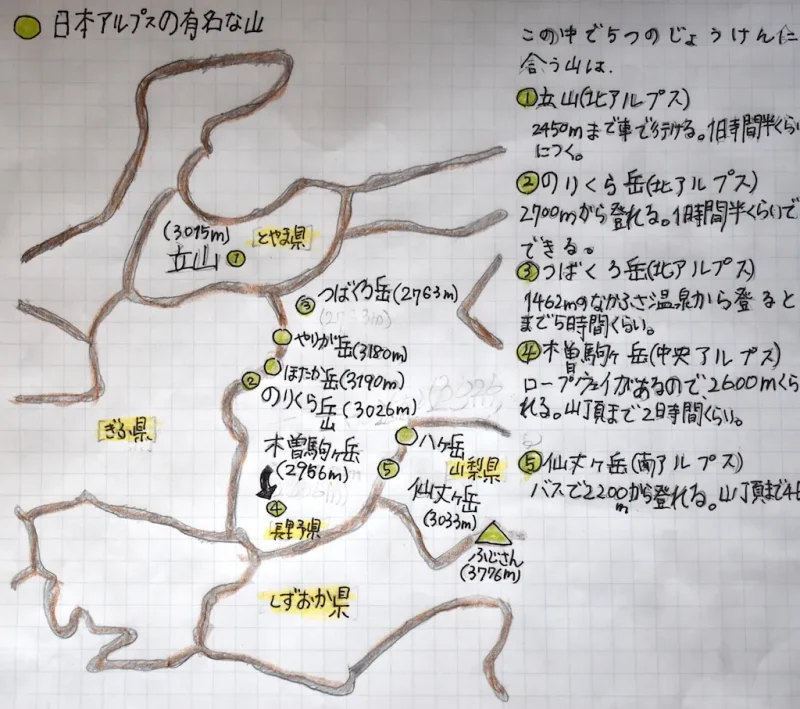 日本アルプスの有名な山
この中で5つのじょうけんに
合う山は、
①立山(北アルプス)
2450mまで車で行ける。1日時間半くらい
につく。
②のりくら岳(北アルプス)
2700mから登れる。1時間半くらいで
できる。
③つばくろ岳(北アルプス)
1462mのなかふさ温泉から登ると
まで5時間くらい。
④木曽駒ヶ岳(中央アルプス)
ロープウェイがあるので、2600mく
れる。山頂まで2時間くらい。
⑤仙丈ヶ岳(南アルプス)
バスで2200mから登れる。山頂まで4
(3015m)
立山 ①
とやま県
③ つばくろ岳(2763m)
やりが岳(3180m)
ほたか岳(3190m)
② のりくら岳(3026m)
木曽駒ヶ岳
(2956m)
④
長野県
ぎふ県
八ヶ岳
山梨県
⑤
仙丈ヶ岳
(3033m)
ふじさん
(3776m)
しずおか県